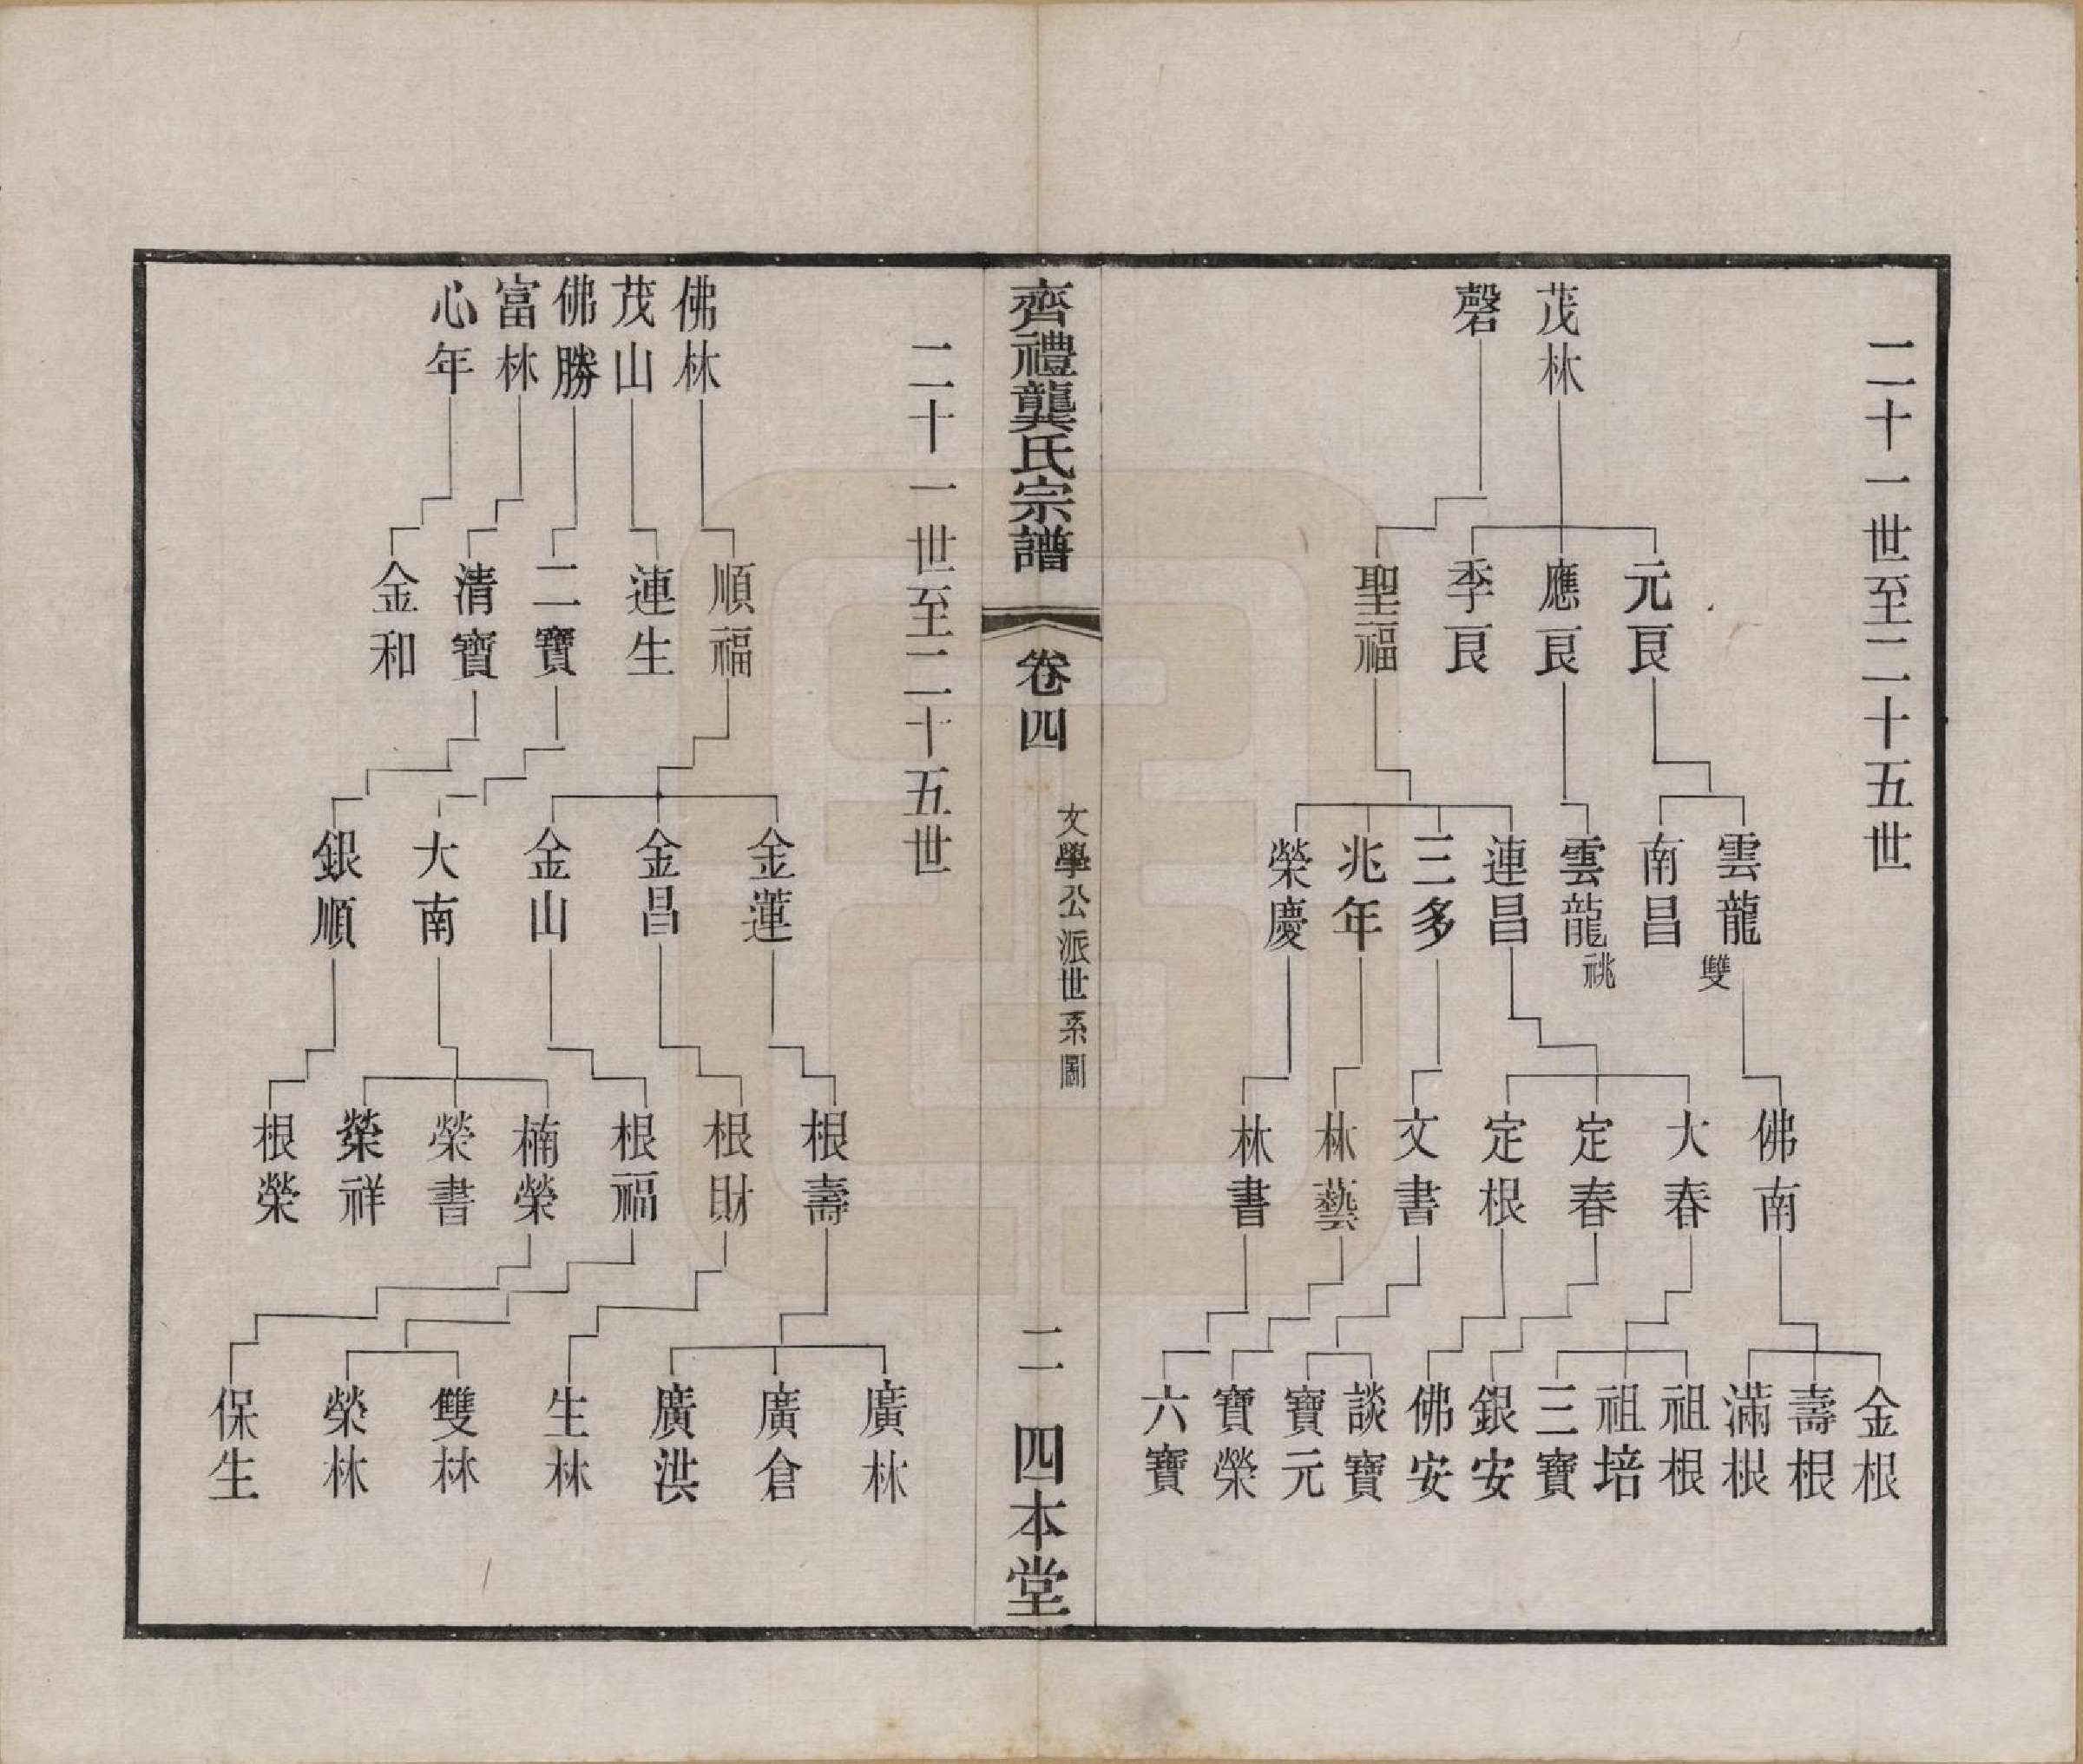 二十一世至二十五世
茂林
磬
元艮
應艮
季艮
聖福
雲龍雙
南昌
雲龍祧
連昌
三多
兆年
榮慶
佛南
大春
定春
定根
文書
林藝
林書
金根
壽根
滿根
祖根
祖培
三寶
銀安
佛安
談寶
寶元
寶榮
六寶
齊禮龔氏宗譜
卷四
文學公派世系圖
二
四本堂
二十一世至二十五世
佛林
茂山
佛勝
富林
心年
順福
連生
二寶
清寶
金和
金蓮
金昌
金山
大南
銀順
根壽
根財
根福
楠榮
榮書
榮祥
根榮
廣林
廣倉
廣洪
生林
雙林
榮林
保生